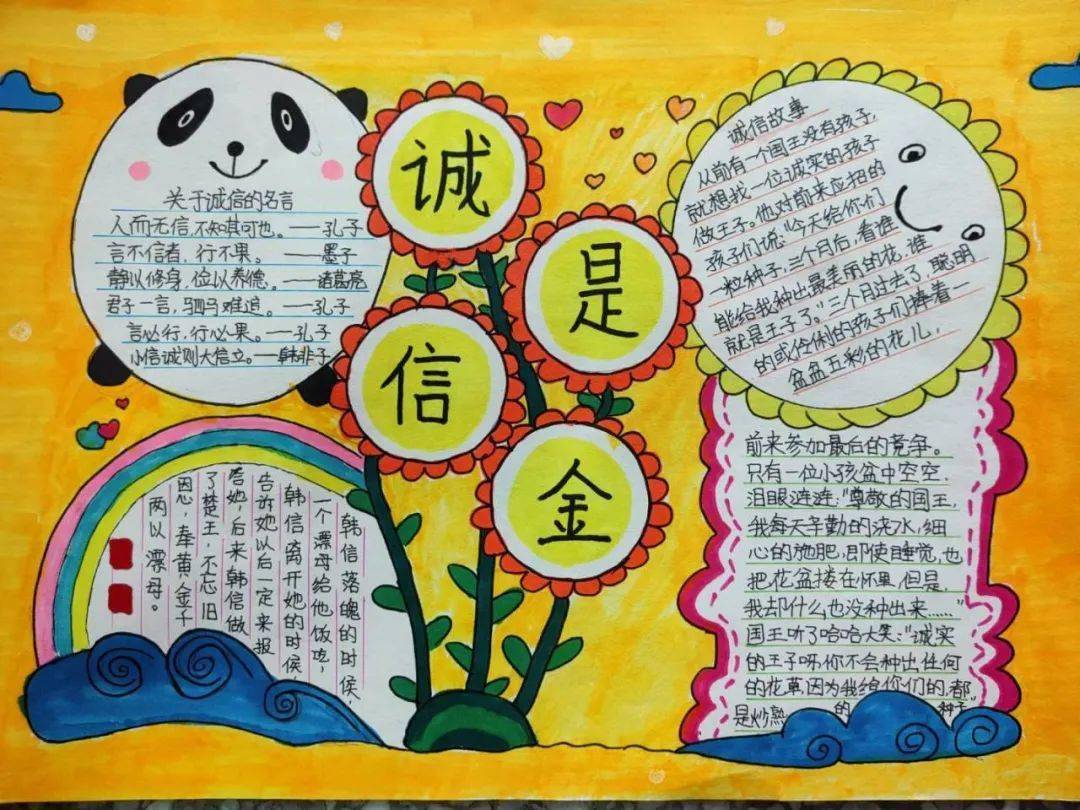 诚
信
是
金
关于诚信的名言
人而无信,不知其可也。——孔子
言不信者,行不果。——墨子
静以修身,俭以养德。——诸葛亮
君子一言,驷马难追。——孔子
言必行,行必果。——孔子
小信诚则大信立。——韩非子
韩信落魄的时候,
一个漂母给他饭吃,
韩信离开她的时候,
告诉她以后一定来报
答她,后来韩信做
了楚王,不忘旧
恩,奉黄金千
两以漂母。
诚信故事
从前有一个国王没有孩子,
就想找一位诚实的孩子
做王子。他对前来应招的
孩子们说:“今天给你们
一粒种子,三个月后,看谁
能给我种出最美丽的花,谁
就是王子了。”三个月过去了,聪明
的或伶俐的孩子们捧着一
盆盆五彩的花儿,
前来参加最后的竞争。
只有一位小孩盆中空空,
泪眼涟涟:“尊敬的国王,
我每天辛勤的浇水,细
心的施肥,即使睡觉,也
把花盆搂在怀里,但是,
我却什么也没种出来……”
国王听了哈哈大笑:“诚实
的王子呀,你不会种出任何
的花草,因为我给你们的,都
是炒熟的种子”